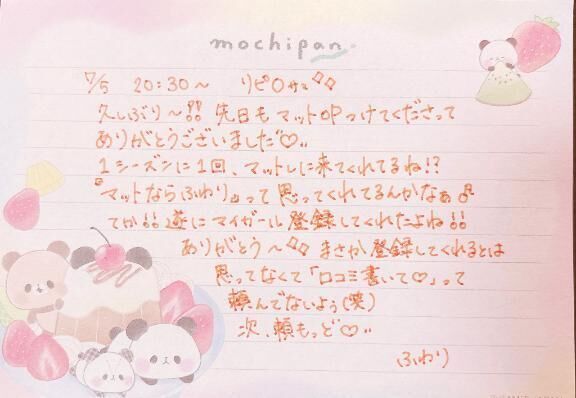 mochipan
7/5 20:30〜 リピ〇様
久しぶり〜!! 先日もマットOPつけてくださって
ありがとうございました♡
1シーズンに1回、マットしに来てくれてるね!?
『マットならふわり』って思ってくれてるんかなぁ♪
てか!! 遂にマイガール登録してくれたよね!!
ありがとう〜 まさか登録してくれるとは
思ってなくて「口コミ書いて♡」って
頼んでないよぅ(笑)
次、頼もっど♡
ふわり